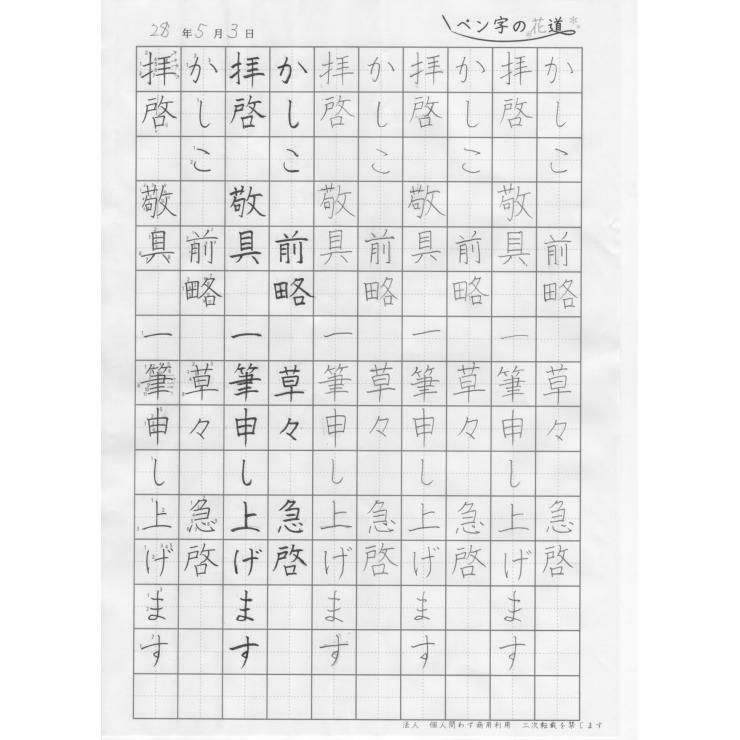 28年5月3日
ペン字の花道
かしこ 前略 草々 急啓
拝啓 敬具 一筆申し上げます
かしこ 前略 草々 急啓
拝啓 敬具 一筆申し上げます
かしこ 前略 草々 急啓
拝啓 敬具 一筆申し上げます
かしこ 前略 草々 急啓
拝啓 敬具 一筆申し上げます
かしこ 前略 草々 急啓
拝啓 敬具 一筆申し上げます
法人 個人問わず商用利用 二次転載を禁じます